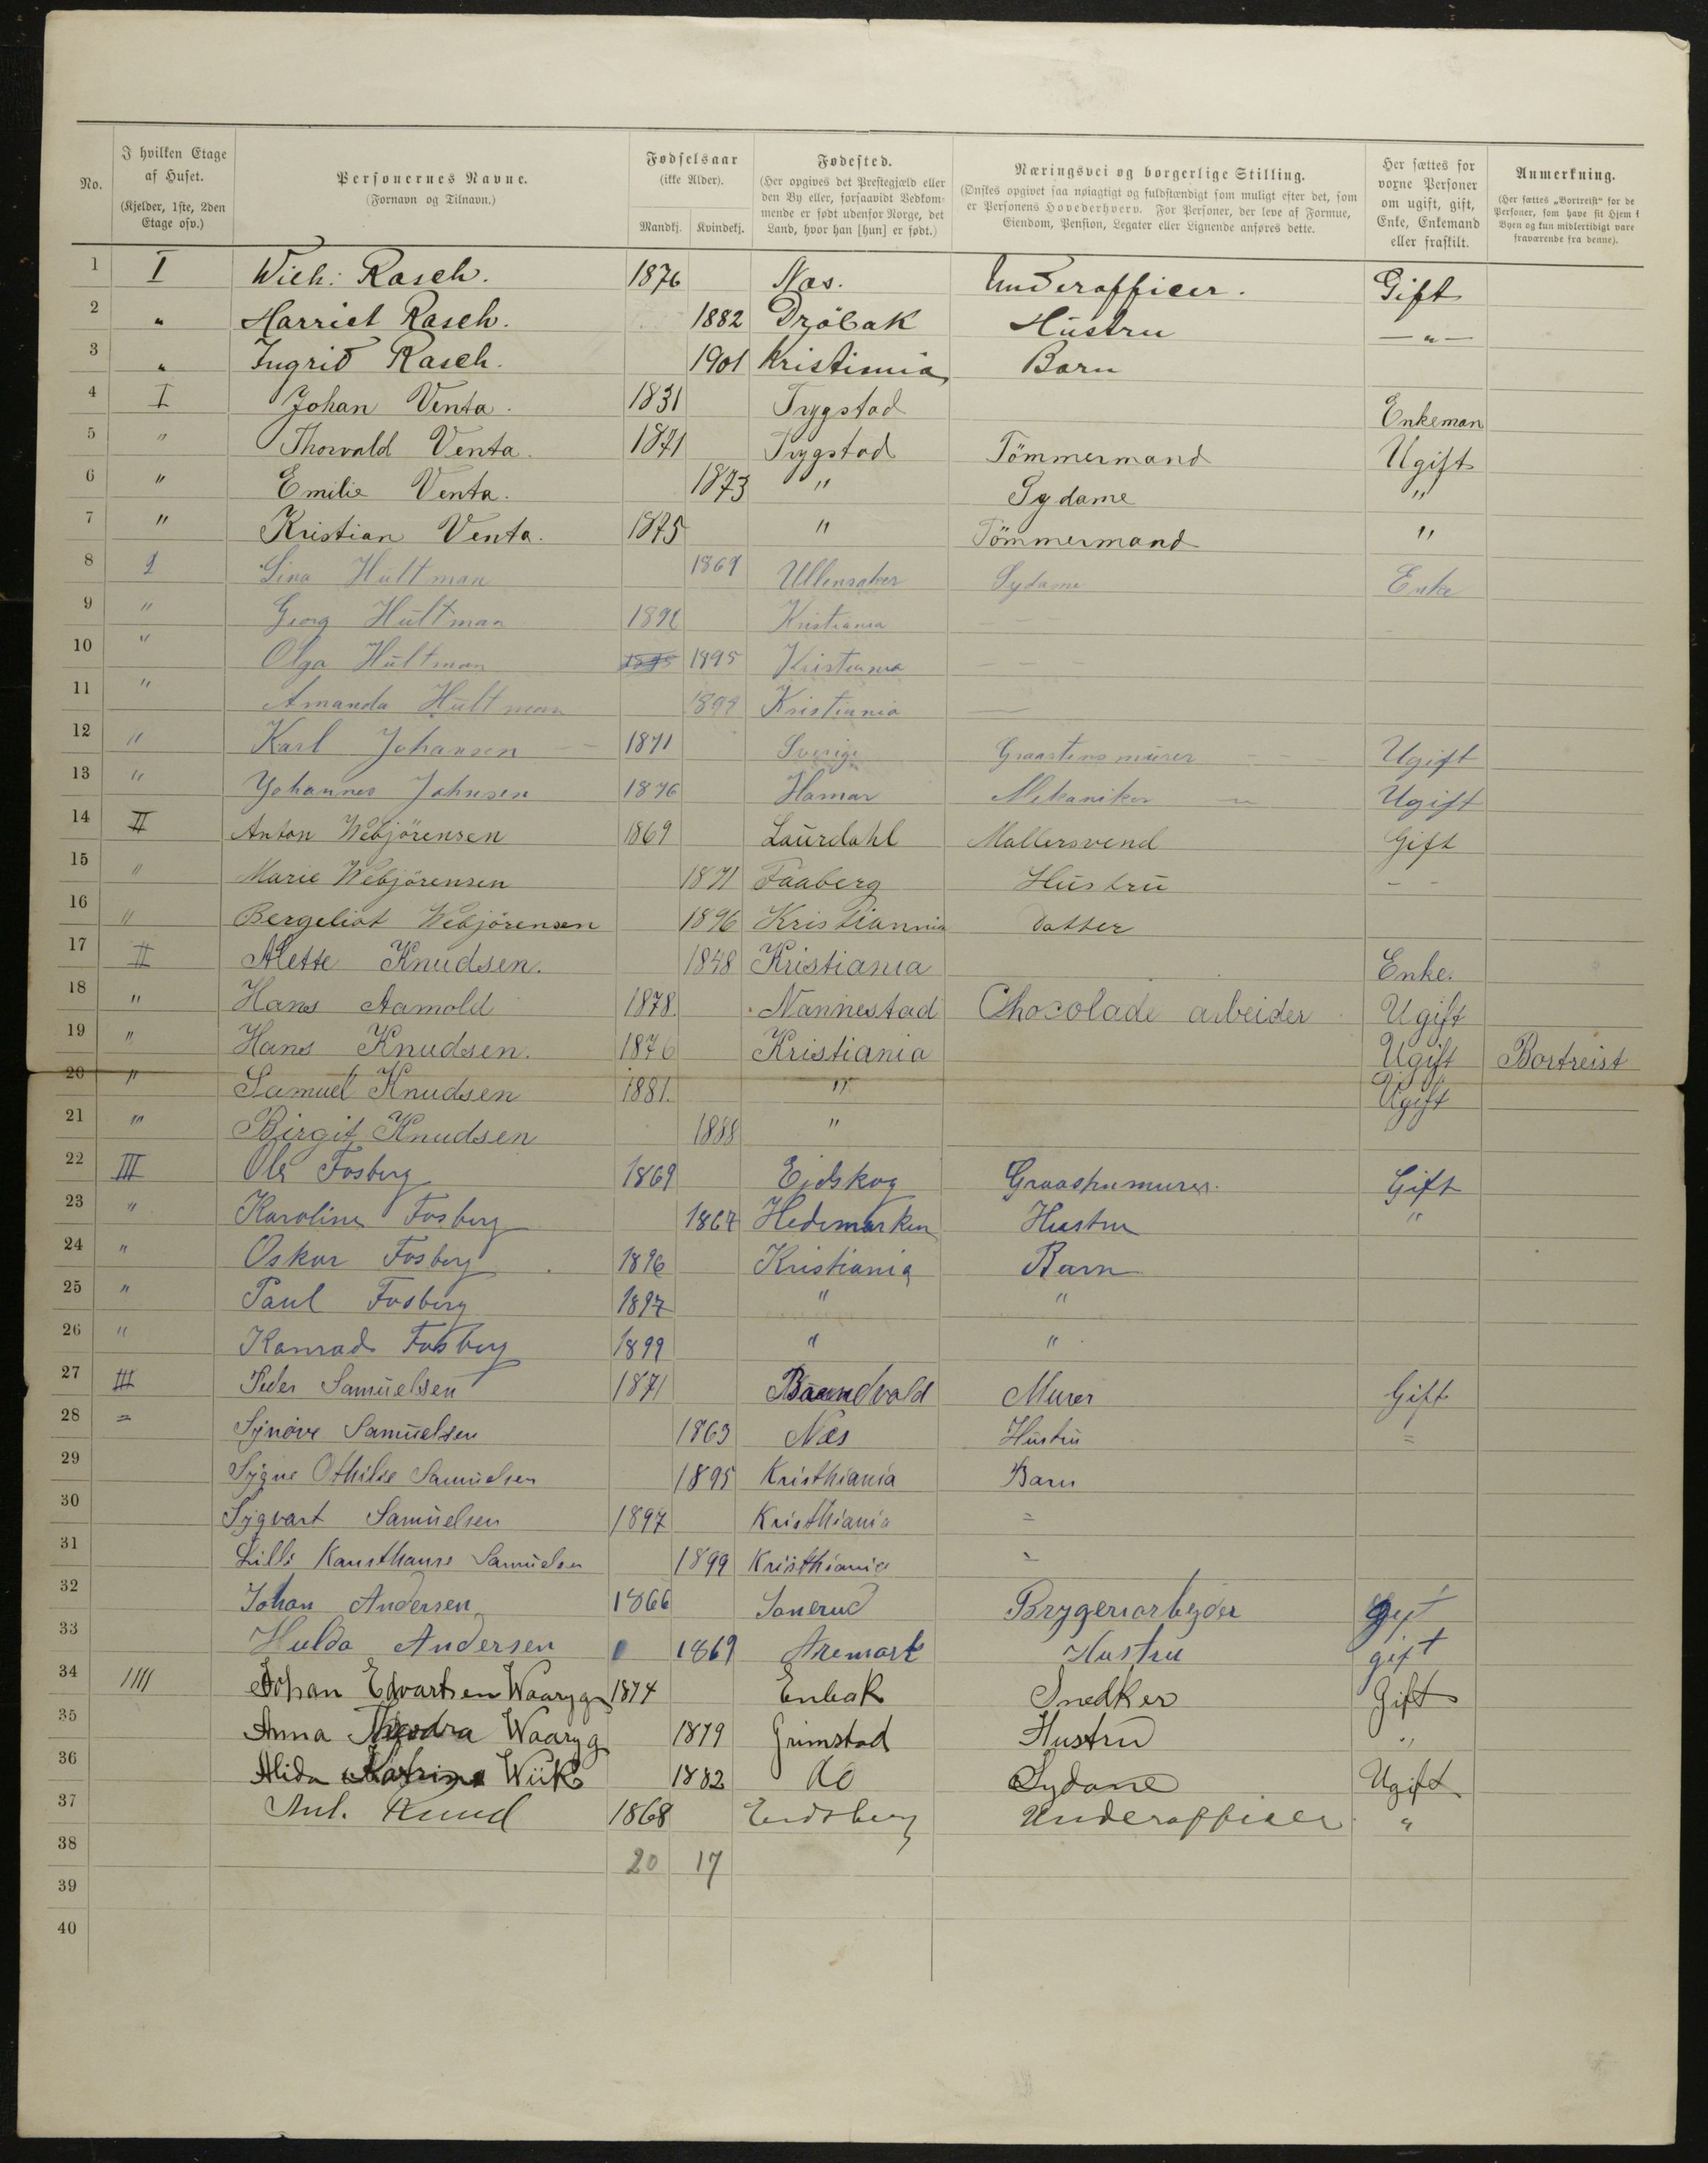 No. I hvilken Etage af Huset. (Kjelder, 1ste, 2den Etage osv.) Personernes Navne. (Fornavn og Tilnavn.) Fødselsaar (ikke Alder). Mandkj. Kvindekj. Fødested. (Her opgives det Prestegjæld eller den By eller, forsaavidt Vedkommende er født udenfor Norge, det Land, hvor han [hun] er født.) Næringsvei og borgerlige Stilling. (Ønskes opgivet saa nøiagtigt og fuldstændigt som muligt efter det, som er Personens Hovederhverv. For Personer, der leve af Formue, Eiendom, Pension, Legater eller Lignende anføres dette. Her sættes for voxne Personer om ugift, gift, Enke, Enkemand eller fraskilt. Anmerkning. (Her sættes „Bortreist" for de Personer, som have sit Hjem i Byen og kun midlertidigt vare fraværende fra denne).
1 I Wilh: Rasch. 1876 Nas. Underofficer. Gift
2 " Harriet Rasch. 1882 Dröbak Hustru — " —
3 " Ingrid Rasch. 1901 Kristiania Barn
4 I Johan Venta. 1831 Trygstad Enkeman
5 " Thorvald Venta. 1871 Trygstad Tömmermand Ugift
6 " Emilie Venta. 1873 " Sydame "
7 " Kristian Venta. 1875 " Tömmermand "
8 Lina Hultman 1869 Ullensaker Sydame Enke
9 " Georg Hultman Kristiania
10 " Olga Hultman 1895 Kristiania — —
11 " Amanda Hultman Kristiania —
12 " Karl Johansen 1871 Sverige Graastensmurer Ugift
13 " Johannes Johnsen 1876 Hamar Mekaniker Ugift
14 II Anton Webjörensen 1869 Laurdahl Mallersvend Gift
15 " Marie Webjörensen 1871 Faaberg Hustru - -
16 " Bergeliot Webjörensen 1896 Kristiannia Datter
17 II Alette Knudsen. 1848 Kristiania Enke.
18 " Hans Aamold 1878. Nannestad Chocolade arbeider Ugift
19 " Hans Knudsen. 1876 Kristiania Ugift Bortreist
20 " Samuel Knudsen 1881. " Ugift
21 " Birgit Knudsen 1888 "
22 III Ole Fosberg 1869 Eidskog Gift
23 " Karoline Fosberg 1867 Hedemarken Hustru "
24 " Oskar Fosberg 1896 Kristiania Barn
25 " Paul Fosberg 1897 " "
26 " Konrad Fosberg 1899 " "
27 III Peder Samuelsen 1871 Murer Gift
28 = Synöve Samuelsen 1863 Nes Hustru =
29 Sygne Othilie Samuelsen 1895 Kristhiania Barn
30 Sygvart Samuelsen 1897 Kristhiania =
31 Lilli Samuelsen 1899 Kristhiania =
32 Johan Andersen 1866 Sanerud Brygeriarbejder gift
33 Hulda Andersen 1869 Aremark Hustru gift
34 IIII Johan Edvartsen Waaryg 1874 Enebak Snedker Gift
35 Anna Waaryg 1879 Grimstad Hustru "
36 Alida Katrine Wiik 1882 do Sydame Ugift
37 Ant. Ruud 1868 Eidsberg Underofficer "
38 20 17
39
40